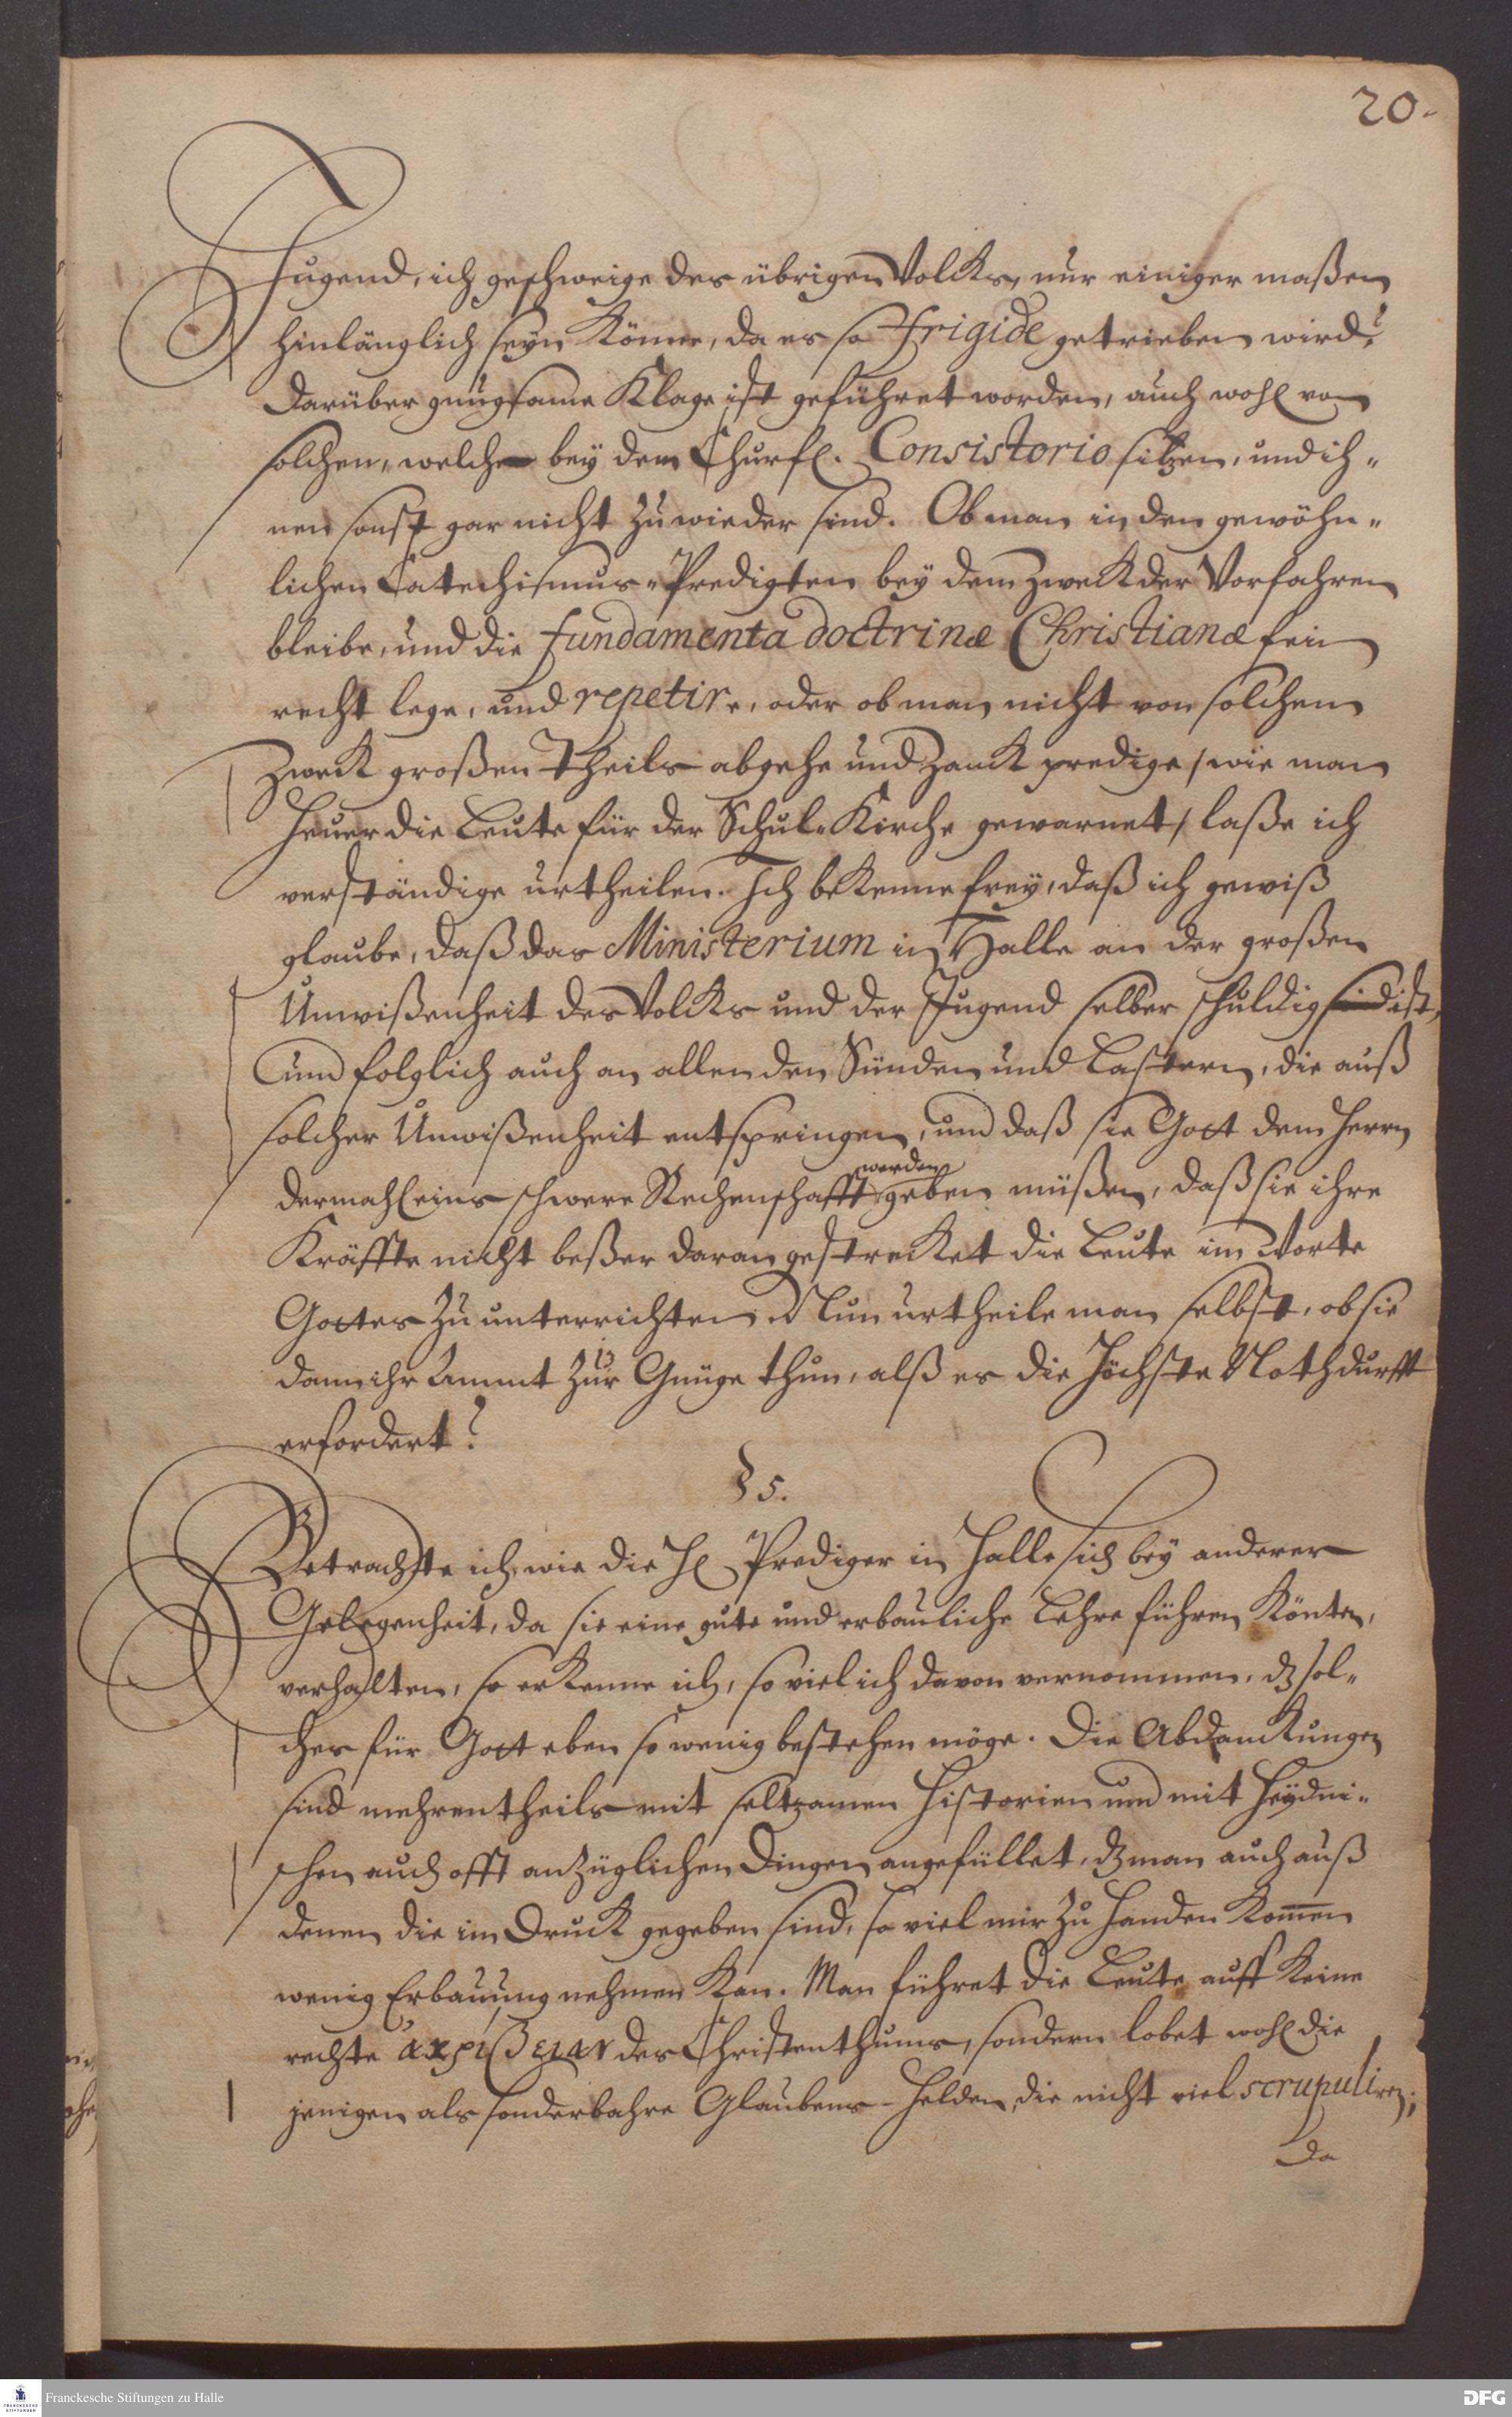 20.
Jugend, ich geschweige des übrigen Volcks, nur einiger maßen
hinlänglich seyn könne, da es so frigide getrieben wird?
Darüber gnugsame Klage ist geführet worden, auch wohl von
solchen, welche bey dem Churfl. Consistorio sitzen, und ih-
nen sonst gar nicht zu wieder sind. Ob man in den gewöhn-
lichen Catechismus-Predigten bey dem Zweck der Vorfahren
bleibe, und die fundamenta doctrinæ Christianæ fein
recht lege, und repetire, oder ob man nicht von solchem
Zweck großen Theils abgehe und Zanck predige / wie man
heuer die Leute für der Schul-Kirche gewarnet / laße ich
verständige urtheilen. Ich bekenne frey, daß ich gewiß
glaube, daß das Ministerium in Halle an der großen
Unwißenheit des Volcks und der Jugend selber schuldig sind ist,
und folglich auch an allen den Sünden und Lastern, die auß
solcher Unwißenheit entspringen, und daß sie Gott dem Herrn
werden
dermahleins schwere Rechenschafft geben müßen, daß sie ihre
Kräffte nicht beßer daran gestrecket die Leute im Worte
Gottes zu unterrichten. Nun urtheile man selbst, ob sie
dann ihr Ammt zur Gnüge thun, alß es die höchste Nothdurfft
erfordert?
§ 5.
Betrachte ich, wie die H Prediger in Halle sich bey anderer
Gelegenheit, da sie eine gute und erbauliche Lehre führen könten,
verhalten, so erkenne ich, so viel ich davon vernommen, dz sol-
ches für Gott eben so wenig bestehen möge. Die Abdanckungen
sind mehrentheils mit seltzamen Historien und mit Heydni-
schen auch offt anzüglichen Dingen angefüllet, dz man auch auß
denen die im Druck gegeben sind, so viel mir zu Handen kommen
wenig Erbauung nehmen kan. Man führet die Leute auff keine
rechte ἀκρίβειαν des Christenthums, sondern lobet wohl die
jenigen als sonderbahre Glaubens-Helden, die nicht viel scrupuliren;
Da
Franckesche Stiftungen zu Halle
FRANCKESCHE STIFTUNGEN
DFG